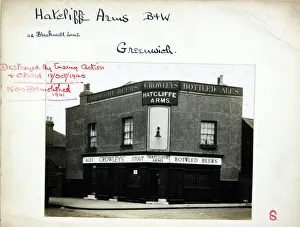 Hatcliffe Arms B+W
Greenwich.
Destroyed By Enemy Action
+ Closed
Now Demolished
1941
CROWLEYS
BOTTLED ALES
HATCLIFFE
ARMS.
ALES CROWLEYS STOUT HATCLIFFE ARMS BOTTLED BEERS
S